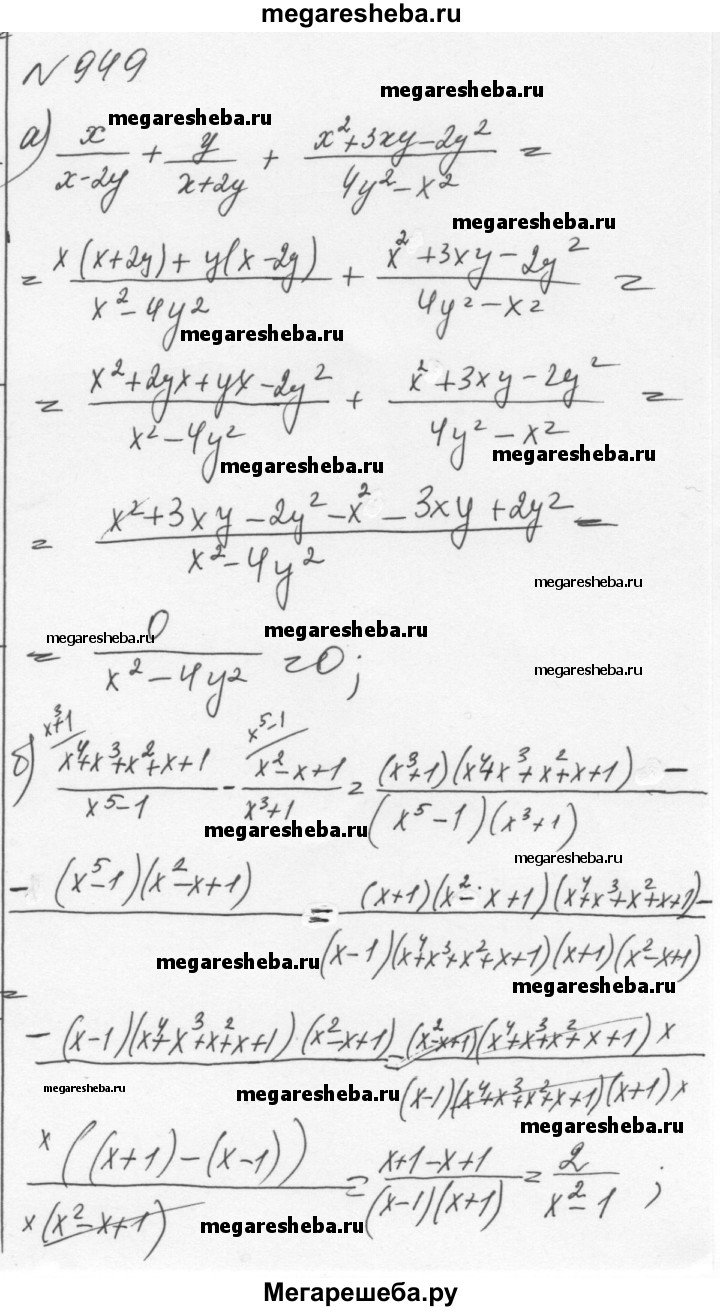 megaresheba.ru
N 949
megaresheba.ru
megaresheba.ru
а) x/(x-2y) + y/(x+2y) + (x²+3xy-2y²)/(4y²-x²) =
megaresheba.ru
= (x(x+2y)+y(x-2y))/(x²-4y²) + (x²+3xy-2y²)/(4y²-x²) =
megaresheba.ru
= (x²+2yx+yx-2y²)/(x²-4y²) + (x²+3xy-2y²)/(4y²-x²) =
megaresheba.ru
megaresheba.ru
= (x²+3xy-2y²-x²-3xy+2y²)/(x²-4y²) =
megaresheba.ru
megaresheba.ru
megaresheba.ru
= 0/(x²-4y²) = 0;
megaresheba.ru
x³+1 x⁵-1
б) (x⁴+x³+x²+x+1)/(x⁵-1) - (x²-x+1)/(x³+1) = ((x³+1)(x⁴+x³+x²+x+1) -)/((x⁵-1)(x³+1))
megaresheba.ru
megaresheba.ru
- (x⁵-1)(x²-x+1) = ((x+1)(x²-x+1)(x⁴+x³+x²+x+1)-)/((x-1)(x⁴+x³+x²+x+1)(x+1)(x²-x+1))
megaresheba.ru
megaresheba.ru
=
- (x-1)(x⁴+x³+x²+x+1)(x²-x+1) = ((x²-x+1)(x⁴+x³+x²+x+1) x)/((x-1)(x⁴+x³+x²+x+1)(x+1) x)
megaresheba.ru
megaresheba.ru
megaresheba.ru
(x ((x+1)-(x-1)))/(x (x²-x+1)) = (x+1-x+1)/((x-1)(x+1)) = 2/(x²-1);
megaresheba.ru
Мегарешеба.ру